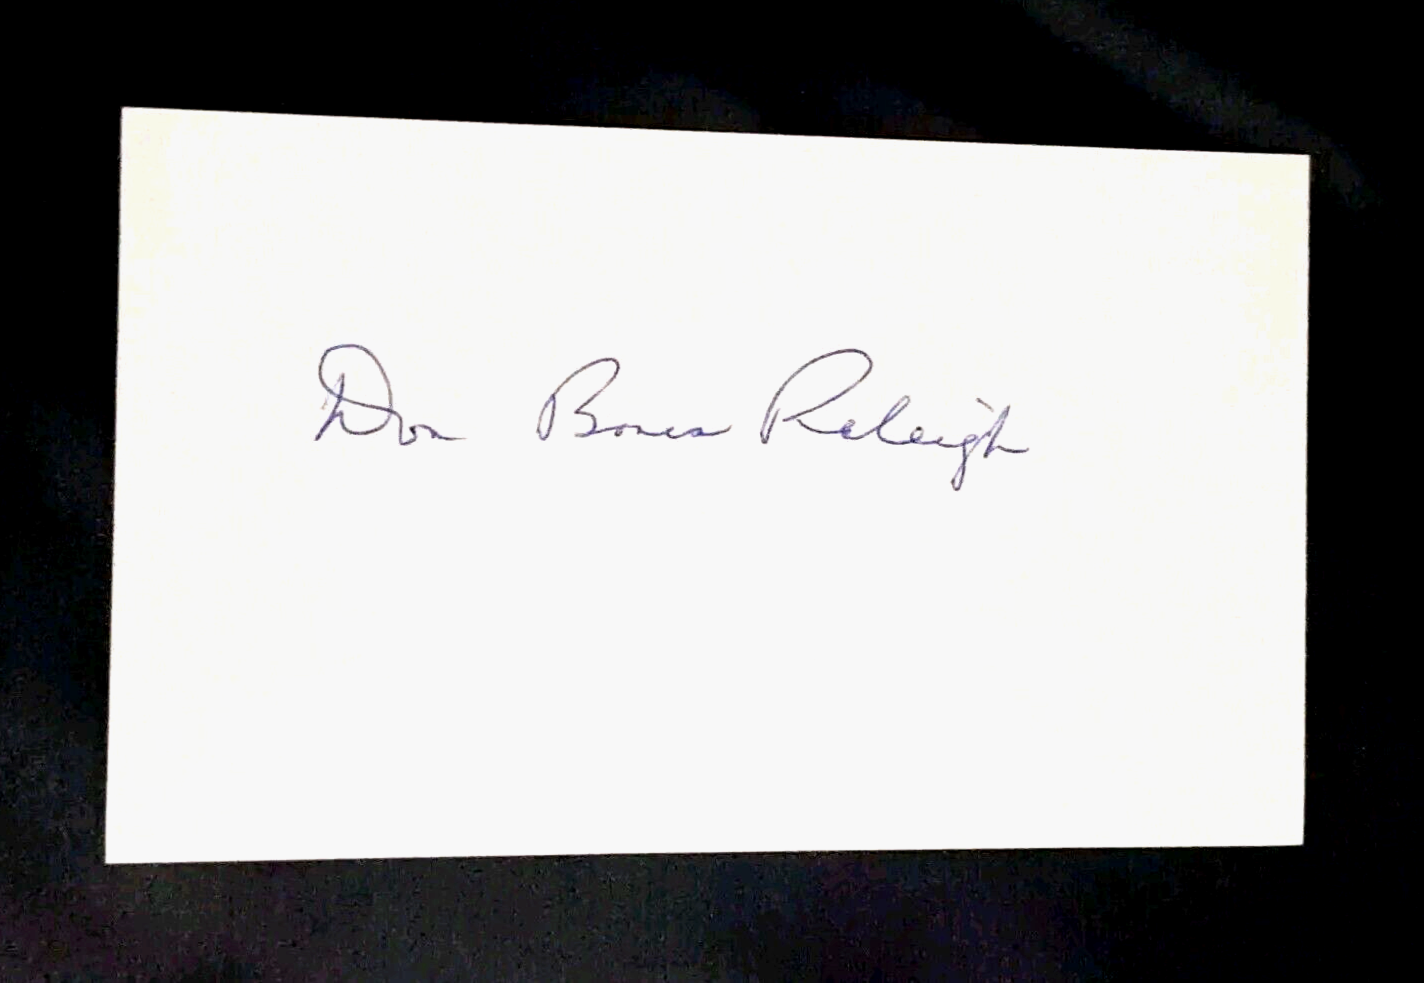 Don Bones Raleigh